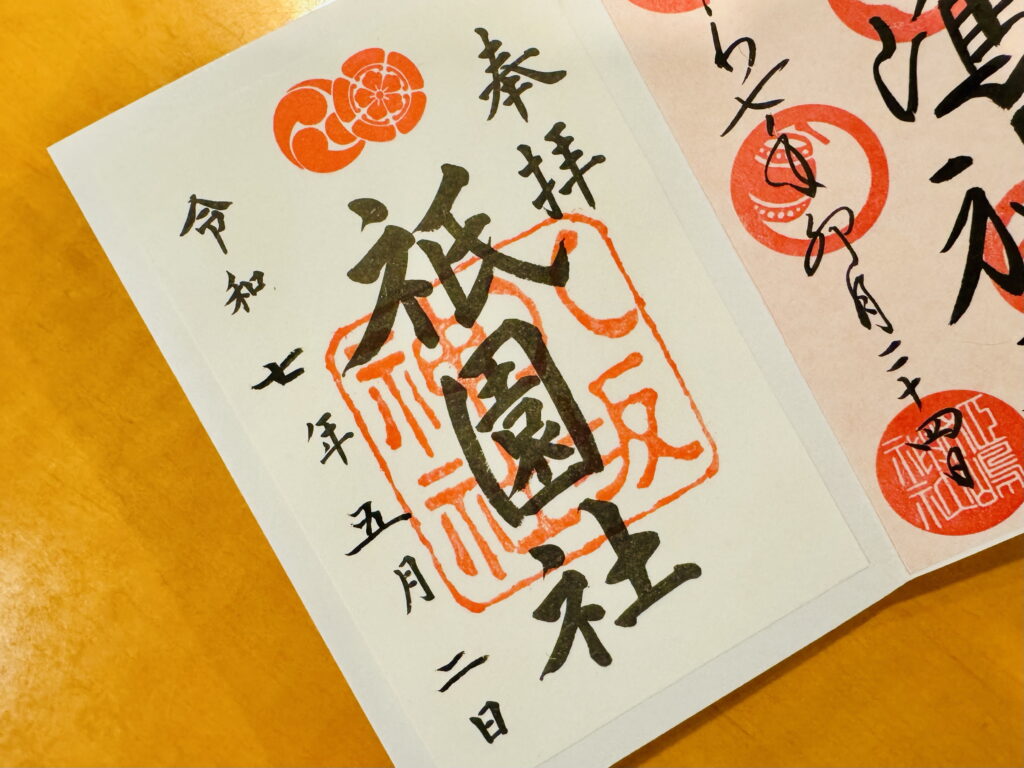 卯月二十四日
奉拝
祇園社
八坂神社
令和七年五月二日